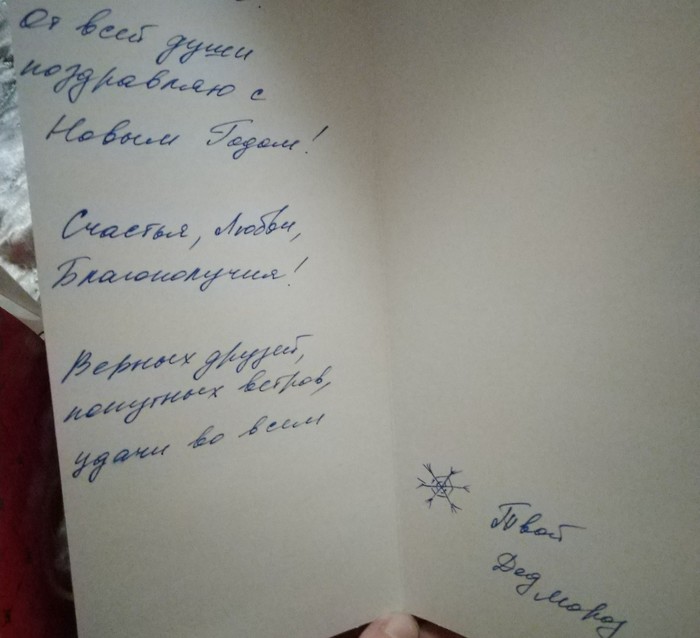 От всей души
поздравляю с
Новым Годом!
Счастья, Любви,
Благополучия!
Верных друзей,
попутных ветров,
удачи во всём
Твой
Дед Мороз